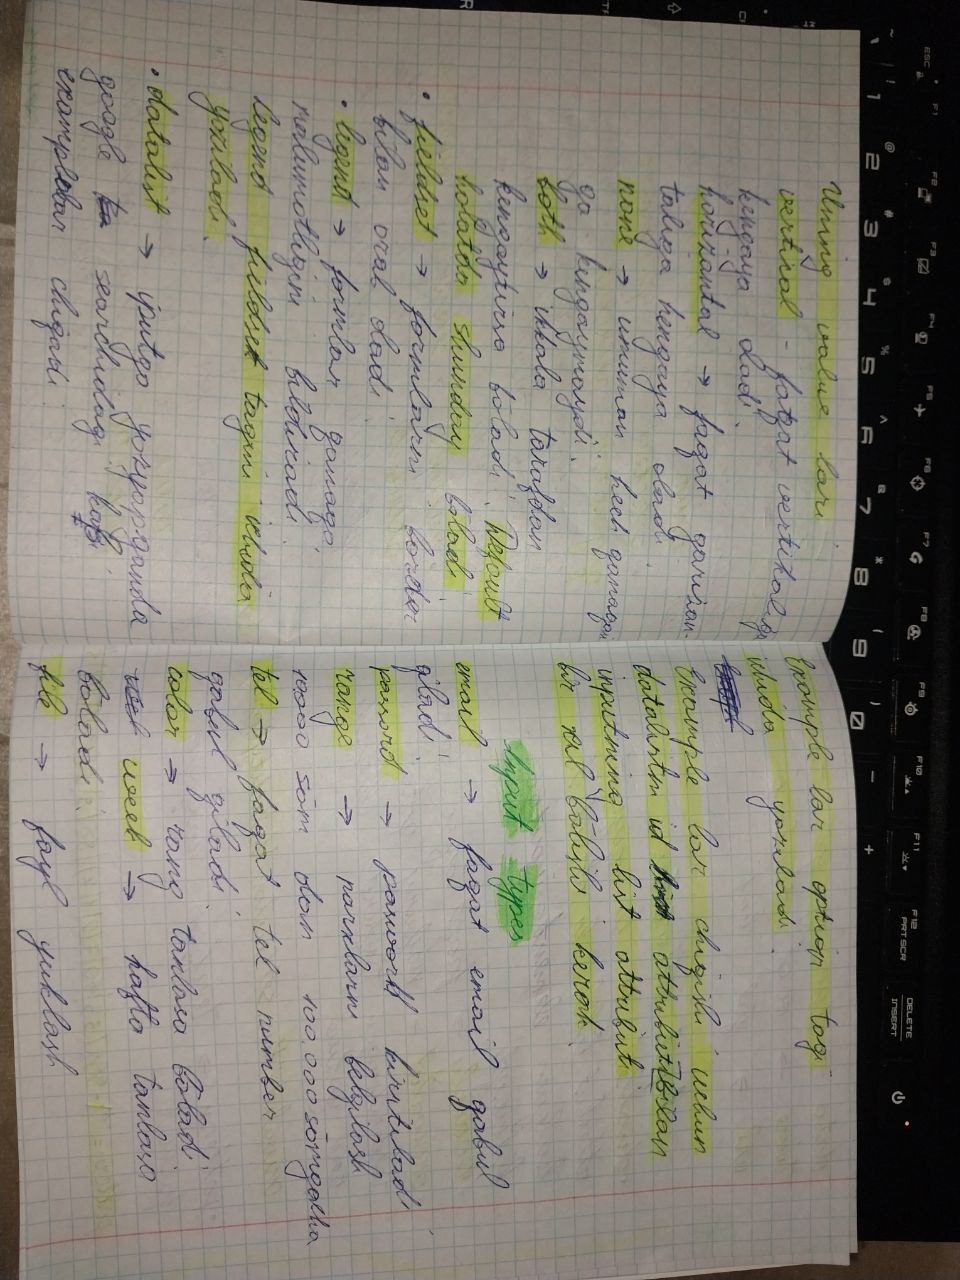 Uning value lari
vertical - faqat vertikalga
kengaya oladi.
horizantal → faqat garizan-
talga kengaya oladi
none → umuman hech qanaqa
ga kengaymaydi.
both → ikkala tarafdan
kengaytirsa bo'ladi. Default
holatda shunday boladi
• fieldset → formlarni border
bilan orab oladi
• legent → formlar qanaqa
malumotligini bildiradi.
legend fieldset tagini ichida
yoziladi.
• datalist → iputga
google searchidagi
examplelar chiqadi.
example lar option tagi
ichida yoziladi.
Example lar chiqishi uchun
datalistni id attributi bilan
inputning list attributi
bir xil bo'lishi kerak.
Input types
email → faqat email qabul
qiladi.
password → password kiritiladi
range → narxlarni belgilash
1000 so'm dan 100.000 so'mgacha
tel → faqat tel number
qabul qiladi.
color → rang tanlasa bo'ladi.
week → hafta tanlasa
boladi.
file → fayl yuklash
ESC
F1
F2
F3
F4
F5
F6
F7
F8
F9
F10
F11
F12
PRT SCR
DELETE
INSERT
~
!
1
@
2
#
3
4
%
5
^
6
7
*
8
(
9
)
0
-
+
R